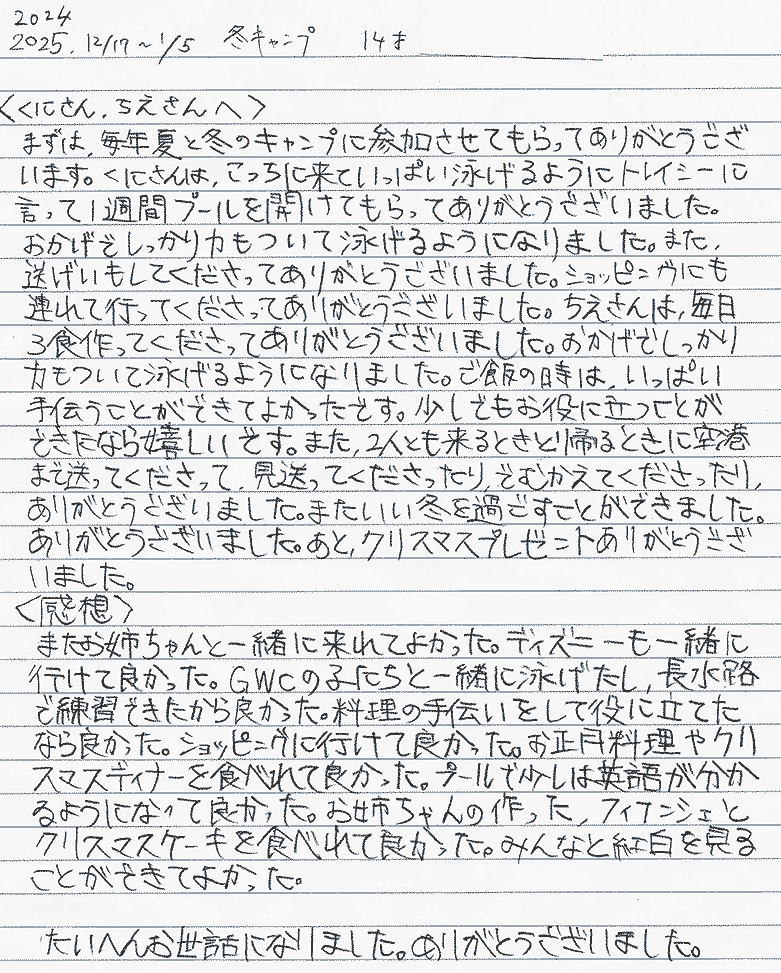 2024
2025. 12/17～1/5 冬キャンプ 14才
〈くにさん. ちえさんへ〉
まずは、毎年夏と冬のキャンプに参加させてもらってありがとうござ
います。くにさんは、こっちに来ていっぱい泳げるようにトレイシーに
言って1週間プールを開けてもらってありがとうございました。
おかげでしっかり力もついて泳げるようになりました。また、
送げいもしてくださってありがとうございました。ショッピングにも
連れて行ってくださってありがとうございました。ちえさんは、毎日
3食作ってくださってありがとうございました。おかげでしっかり
力もついて泳げるようになりました。ご飯の時は、いっぱい
手伝うことができてよかったです。少しでもお役に立つことが
できたなら嬉しいです。また、2人とも来るときとり帰るときに空港
まで送ってくださって、見送ってくださったり、でむかえてくださったり、
ありがとうございました。またいい冬を過ごすことができました。
ありがとうございました。あと、クリスマスプレゼントありがとうござ
いました。
〈感想〉
またお姉ちゃんと一緒に来れてよかった。ディズニーも一緒に
行けて良かった。GWCの子たちと一緒に泳げたし、長水路
で練習できたから良かった。料理の手伝いをして役に立てた
なら良かった。ショッピングに行けて良かった。お正月料理やクリ
スマスディナーを食べれて良かった。プールで少しは英語が分か
るようになって良かった。お姉ちゃんの作った、フィナンシェと
クリスマスケーキを食べれて良かった。みんなと紅白を見る
ことができてよかった。
たいへんお世話になりました。ありがとうございました。